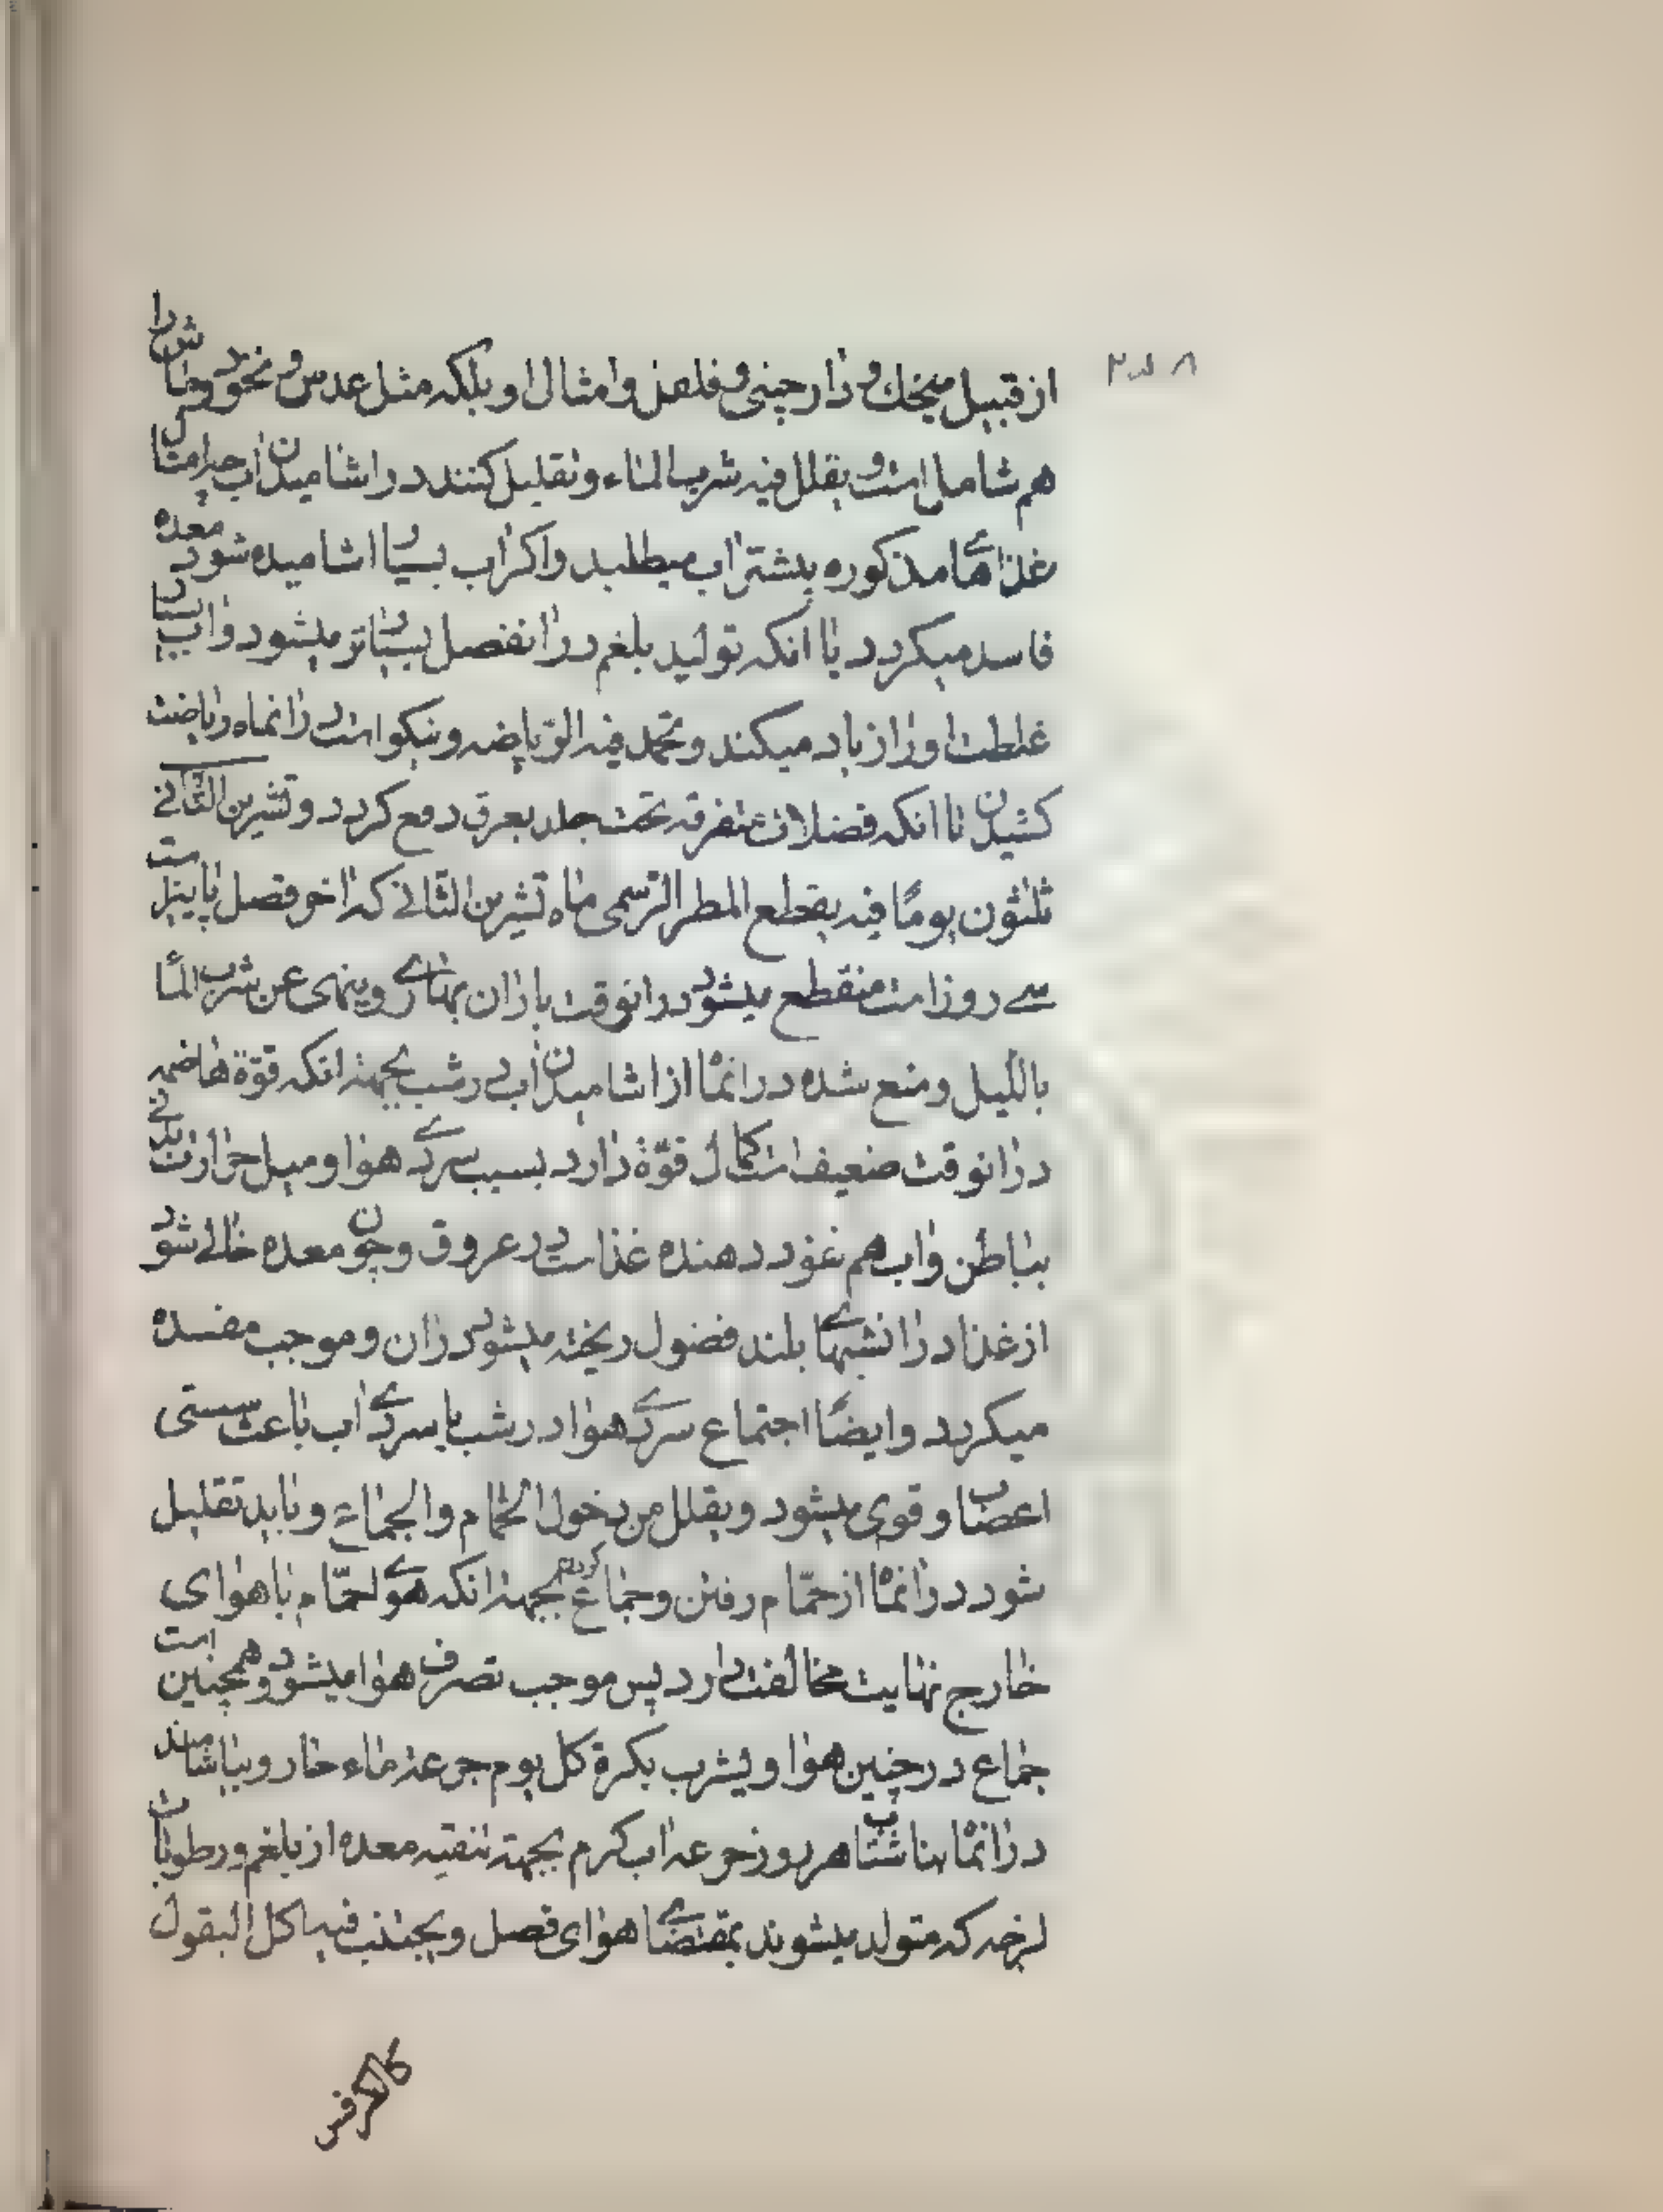 از قبیل میخك و دارچینی و فلفل و امثال او بلکه مثل عدس و نخود و خاش را
هم شاملست و یقلل فیه شرب الماء و تقلیل کنند در اشامیدن اب چرا
غذاهای مذکوره بیشتر اب میطلبد و اکر اب بسیار اشامیده شود معده
فاسد میکردد یا انکه تولید بلغم در انفصل بیشتر میشود و اب بسیار
غلظت او را زیاد میکند و تحمد فیه الریاضه و نیکو است در انماه ریاضت
کشیدن تا انکه فضلات متفرقه تحت جلد بعرق دفع کردد و تشرین الثانی
ثلثون یومًا فیه یقطع المطر الرسمی ماه تشرین الثانی که اخر فصل پاییز است
سی روز است منقطع میشود در انوقت باران بهاری و ینهی عن شرب الماء
باللیل و منع شده در انماه از اشامیدن اب در شب بجهة انکه قوّة هاضمه
در انوقت ضعیف است کمال قوّة دارد بسبب سردی هوا و میل حرارت بدنی
بباطن و اب هم نفوذ دهنده غذاست در عروق و چون معده خالی شود
از غذا در انشبهای بلند فضول ریخته میشود در ان و موجب مفسده
میکردد و ایضًا اجتماع سردی هوا در شب با سردی اب باعث سستی
اعصاب و قوی میشود و یقلل من دخول الحمّام و الجماع و باید تقلیل
شود در انماه از حمّام رفتن و جماع کردن بجهة انکه هوای حمّام با هوای
خارج نهایت مخالفت دارد پس موجب تصرف هوا میشود و همچنین است
جماع در چنین هوا و یشرب بکرة کل یوم جرعة ماء حار و بیاشامند
در انماه ناشتا هر روز جرعه اب کرم بجهة تنقیه معده از بلغم و رطوبات
لزجه که متولد میشوند بمقتضای هوای فصل و یجتنب فیه اکل البقول
کالکرفس